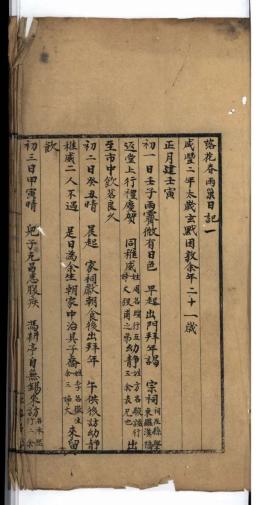 落花春雨巢日記一
咸豐二年太歲玄黓困敦余年二十一歲
正月建壬寅
初一日壬子雨霽微有日色 早起出門拜年謁 宗祠
返堂上行禮慶賀 同稚威 幼靜 出
至市中飲茗良久
初二日癸丑晴 晨起 家祠獻朝食後出拜年 午供後訪幼靜
稚威二人不遇 是日為余生朝家中治具子喬 來留
飲
初三日甲寅晴 兒子 患腹疾 馮耕亭自無錫來訪